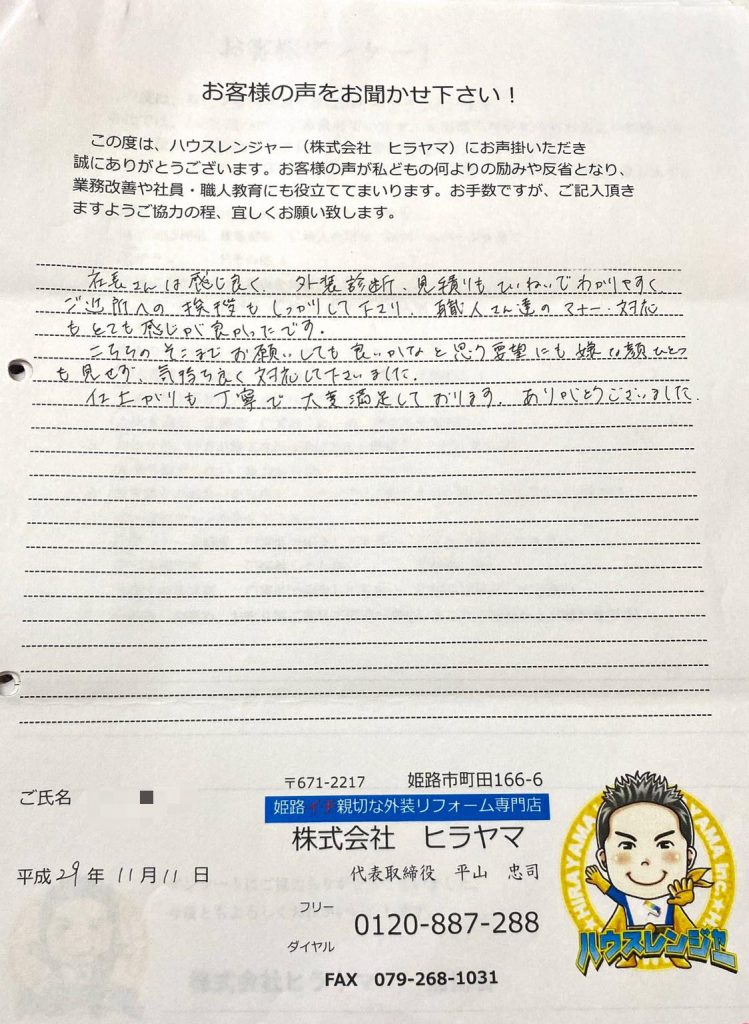 お客様の声をお聞かせ下さい！
この度は、ハウスレンジャー（株式会社　ヒラヤマ）にお声掛いただき
誠にありがとうございます。お客様の声が私どもの何よりの励みや反省となり、
業務改善や社員・職人教育にも役立ててまいります。お手数ですが、ご記入頂き
ますようご協力の程、宜しくお願い致します。
社長さんは感じ良く、外装診断、見積りもていねいでわかりやすく
ご近所への挨拶もしっかりして下さり、職人さん達のマナー・対応
もとても感じが良かったです。
こちらのそこまでお願いしても良いかなと思う要望にも嫌な顔ひとつ
も見せず、気持ち良く対応して下さいました。
仕上がりも丁寧で大変満足しております。ありがとうございました。
〒671-2217　姫路市町田166-6
ご氏名
姫路イチ親切な外装リフォーム専門店
株式会社　ヒラヤマ
平成29年11月11日
代表取締役　平山　忠司
フリー
ダイヤル
0120-887-288
FAX　079-268-1031
HIRAYAMA Inc
ハウスレンジャー